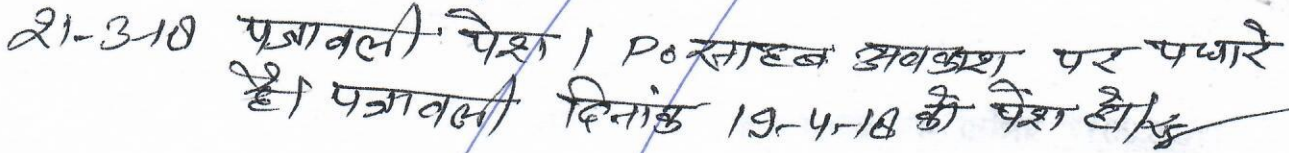 21-3-18 पत्रावली पेश। P० साहब अवकाश पर पधारे
है। पत्रावली दिनांक 19-4-18 को पेश हो।